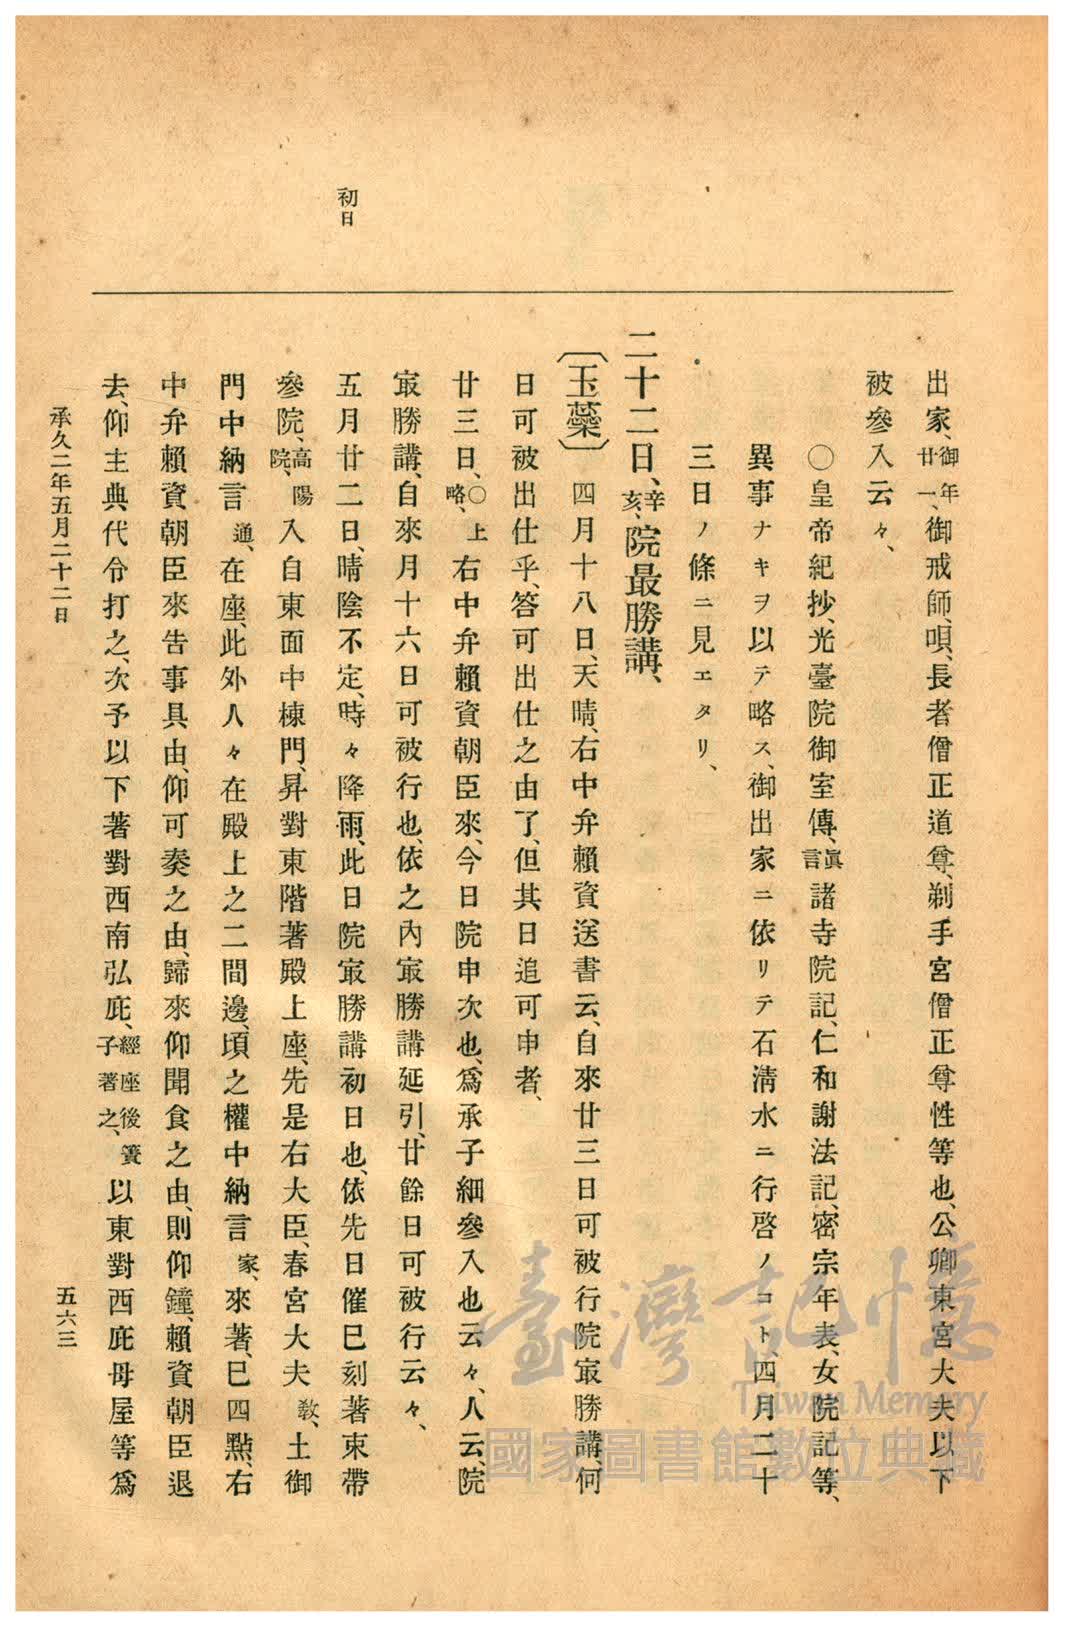 出家、御年廿一、御戒師、唄、長者僧正道尊、剃手宮僧正尊性等也、公卿東宮大夫以下
被參入云々、
〇皇帝紀抄、光臺院御室傳、眞言諸寺院記、仁和謝法記、密宗年表、女院記等、
異事ナキヲ以テ略ス、御出家ニ依リテ石淸水ニ行啓ノコト、四月二十
三日ノ條ニ見エタリ、
二十二日、辛亥、院最勝講、
〔玉蘂〕四月十八日、天晴、右中弁賴資送書云、自來廿三日可被行院㝡勝講、何
日可被出仕乎、答可出仕之由了、但其日追可申者、
廿三日、〇上略、右中弁賴資朝臣來、今日院申次也、爲承子細參入也云々、人云、院
㝡勝講、自來月十六日可被行也、依之內㝡勝講延引、廿餘日可被行云々、
初日
五月廿二日、晴陰不定、時々降雨、此日院㝡勝講初日也、依先日催巳刻著束帶
參院、高陽院、入自東面中棟門、昇對東階著殿上座、先是右大臣、春宮大夫敎、土御
門中納言通、在座、此外人々在殿上之二間邊、頃之權中納言家、來著、巳四點、右
中弁賴資朝臣來告事具由、仰可奏之由、歸來仰聞食之由、則仰鐘、賴資朝臣退
去、仰主典代令打之、次予以下著對西南弘庇、經座後簀子著之、以東對西庇母屋等爲
承久二年五月二十二日
五六三
臺灣記憶
Taiwan Memory
國家圖書館數位典藏